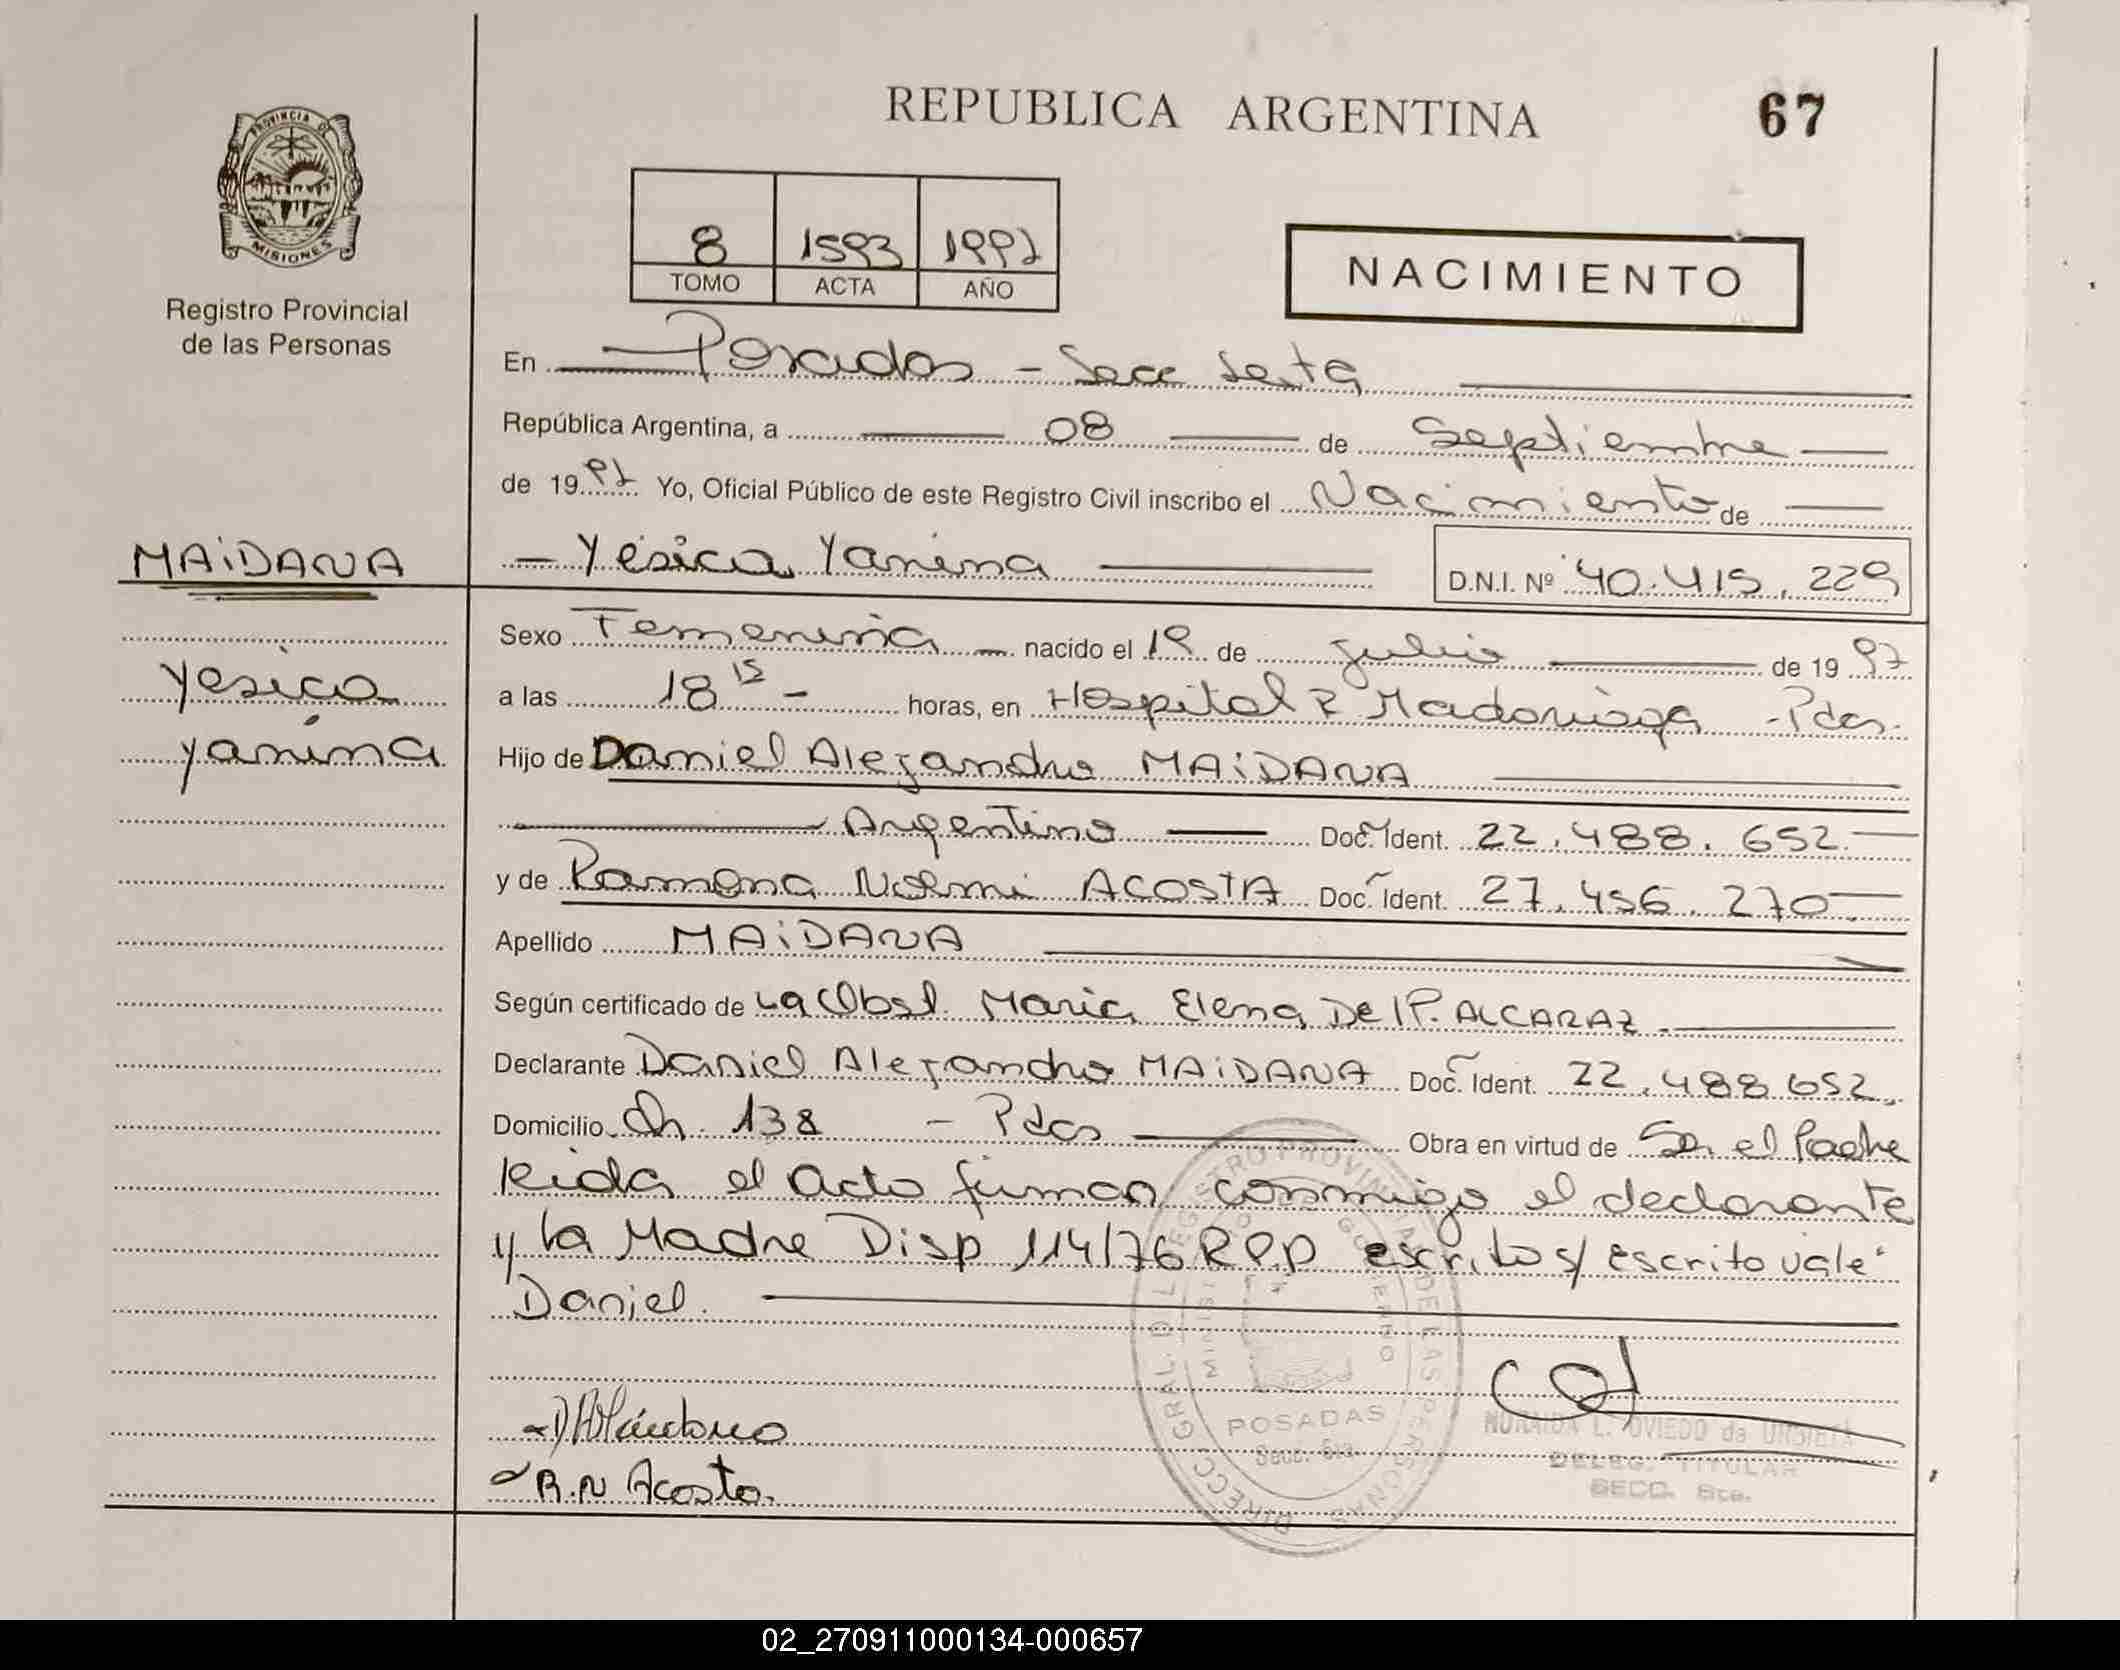 REPUBLICA ARGENTINA
67
PROVINCIA DE
MISIONES
Registro Provincial
de las Personas
8 1593 1997
TOMO ACTA AÑO
NACIMIENTO
En Posadas - Secc Sexta
República Argentina, a 08 de Septiembre
de 1997 Yo, Oficial Público de este Registro Civil inscribo el Nacimiento de
MAiDANA
- Yésica Yanina D.N.I. Nº 40.415.229
Sexo Femenina nacido el 19 de julio de 1997
Yesica
a las 18 15 - horas, en Hospital R Madariaga - Pdas.
Yanina
Hijo de Daniel Alejandro MAiDANA
Argentino Doc. Ident. 22.488.652
y de Ramona Noemi ACOSTA Doc. Ident. 27.456.270
Apellido MAiDANA
Según certificado de La Obst. Maria Elena Del P. ALCARAZ
Declarante Daniel Alejandro MAiDANA Doc. Ident. 22.488.652.
Domicilio Ch. 138 - Pdas Obra en virtud de Ser el Padre
leida el acta firman conmigo el declarante
y la Madre Disp 114/76 R.P.P escritos/ escrito vale"
Daniel.
R.N Acosta.
DIRECC. GRAL. DEL REGISTRO PROVINCIAL DE LAS PERSONAS
POSADAS
Secc. 6ta.
NURAIDA L. OVIEDO de
DELEG. TITULAR
SECC. 6ta.
02_270911000134-000657